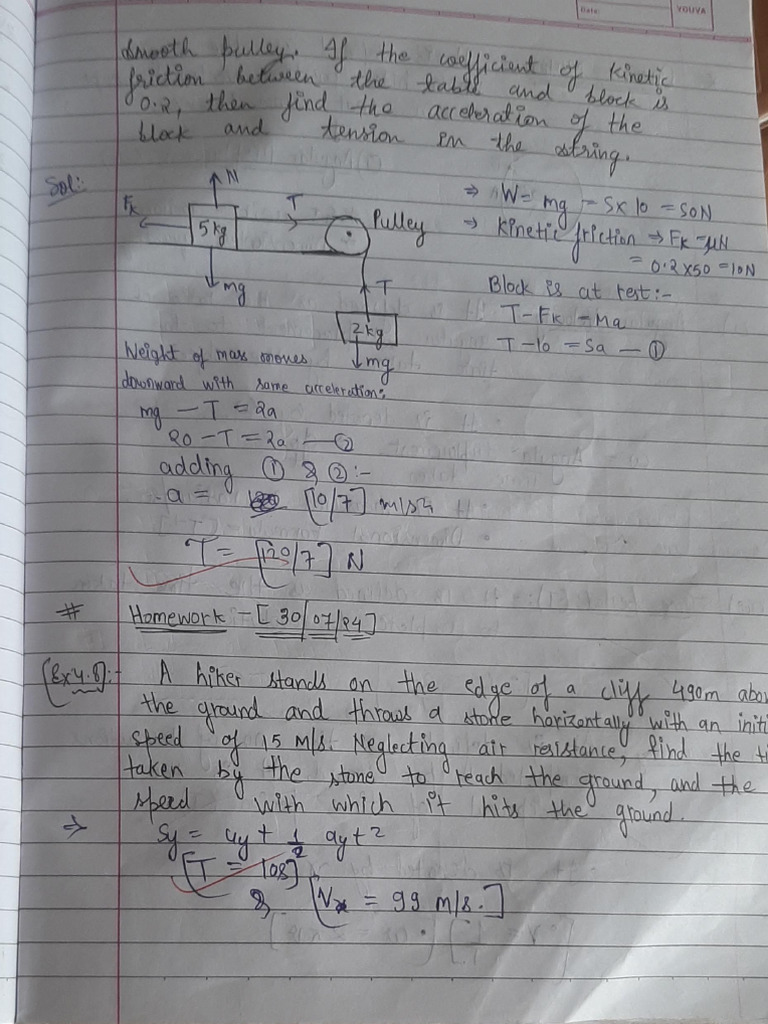 Date:
YOUVA
smooth pulley. If the coefficient of kinetic
friction between the table and block is
0.2, then find the acceleration of the
block and tension in the string.
Sol:
N
Fk
5kg
T
Pulley
mg
T
2kg
mg
⇒ W = mg = 5x10 = 50N
→ Kinetic friction ⇒ Fk = μN
= 0.2x50 = 10N
Block is at rest:-
T - Fk = Ma
T - 10 = 5a — ①
Weight of mass moves
downward with same acceleration:
mg - T = 2a
20 - T = 2a — ②
adding ① & ② :-
a = [10/7] m/s2
T = [120/7] N
# Homework - [30/07/24]
[Ex 4.8]:- A hiker stands on the edge of a cliff 490m abov
the ground and throws a stone horizontally with an initi
speed of 15 m/s. Neglecting air reistance, find the ti
taken by the stone to reach the ground, and the
speed with which it hits the ground.
⇒ Sy = uy + 1/2 ayt2
[T = 10s]
& [Vx = 99 m/s.]